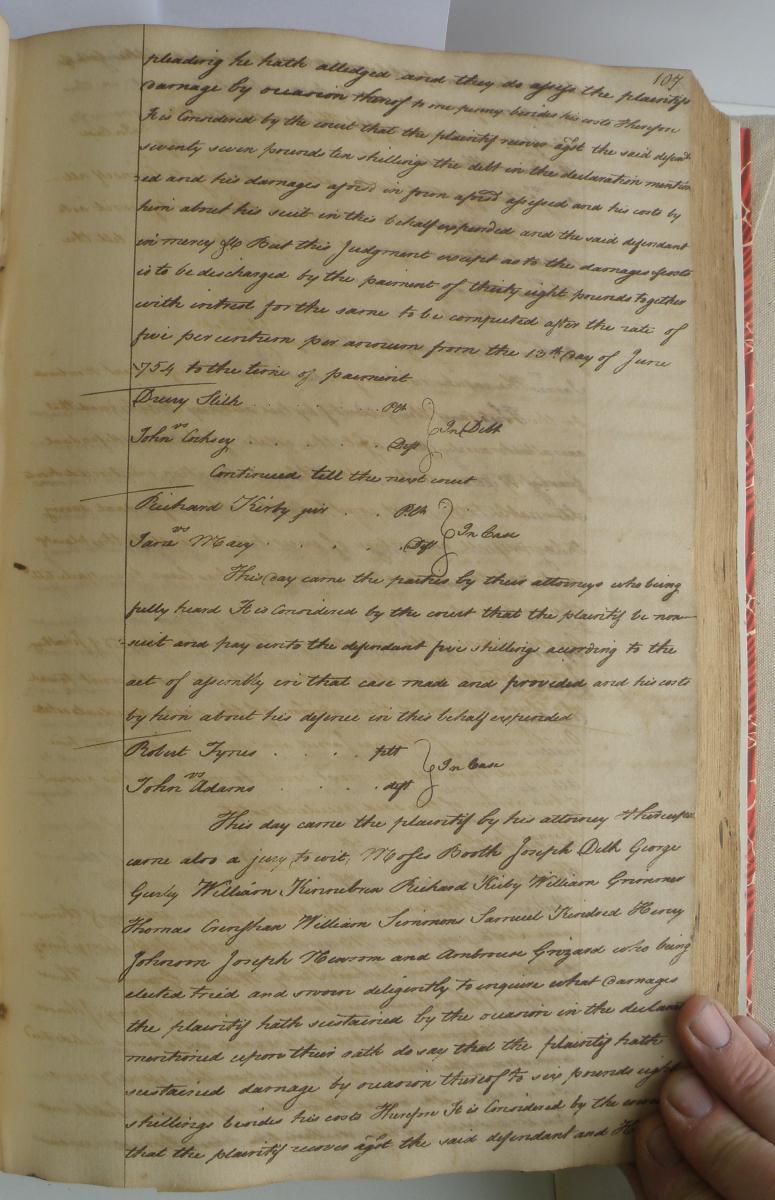 107
pleading he hath alledged and they do assess the plaintifs
damage by occasion thereof to one penny besides his costs Therefore
It is Considered by the court that the plaintif recover agst the said defend.t
seventy seven pounds ten shillings the debt in the declaration mention
ed and his damages afores.d in form afores.d assessed and his costs by
him about his suit in this behalf expended and the said defendant
in mercy &c But this Judgment except as to the damages & costs
is to be discharged by the paiment of thirty eight pounds together
with intrest for the same to be computed after the rate of
five per centum per annum from the 13th Day of June
1754 to the time of paiment
Drury Stith . . . . . Plt
vs } In Debt
John Cocksey . . . . . Deft
Continued till the next court
Richard Kirby jur . . Plt
vs } In Case
Jane Macy . . . . Deft
This day came the parties by their attorneys who being
fully heard It is Considered by the court that the plaintif be non-
-suit and pay unto the defendant five shillings according to the
act of assembly in that case made and provided and his costs
by him about his defence in this behalf expended
Robert Tynes . . . . pltt
vs } In Case
John Adams . . . deft
This day came the plaintif by his attorney & thereupon
came also a jury to wit, Moses Booth Joseph Delk George
Gurly William Kinnebrea Richard Kirby William Grimmer
Thomas Crenshan William Simmons Samuel Kindred Henry
Johnson Joseph Newsom and Ambrouse Grizard who being
elected tried and sworn diligently to inquire what Damages
the plaintif hath sustained by the occasion in the declarat
mentioned upon their oath do say that the plaintif hath
sustained damage by occasion thereof to six pounds eight
shillings besides his costs Therefore It is Considered by the
that the plaintif recover agst the said defendant and